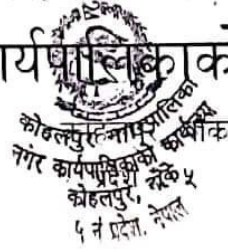 र्यपालिकाको
कोहलपुर नगरपालिका
नगर कार्यपालिकाको कार्यालय
कोहलपुर, बाँके
५ नं प्रदेश, नेपाल